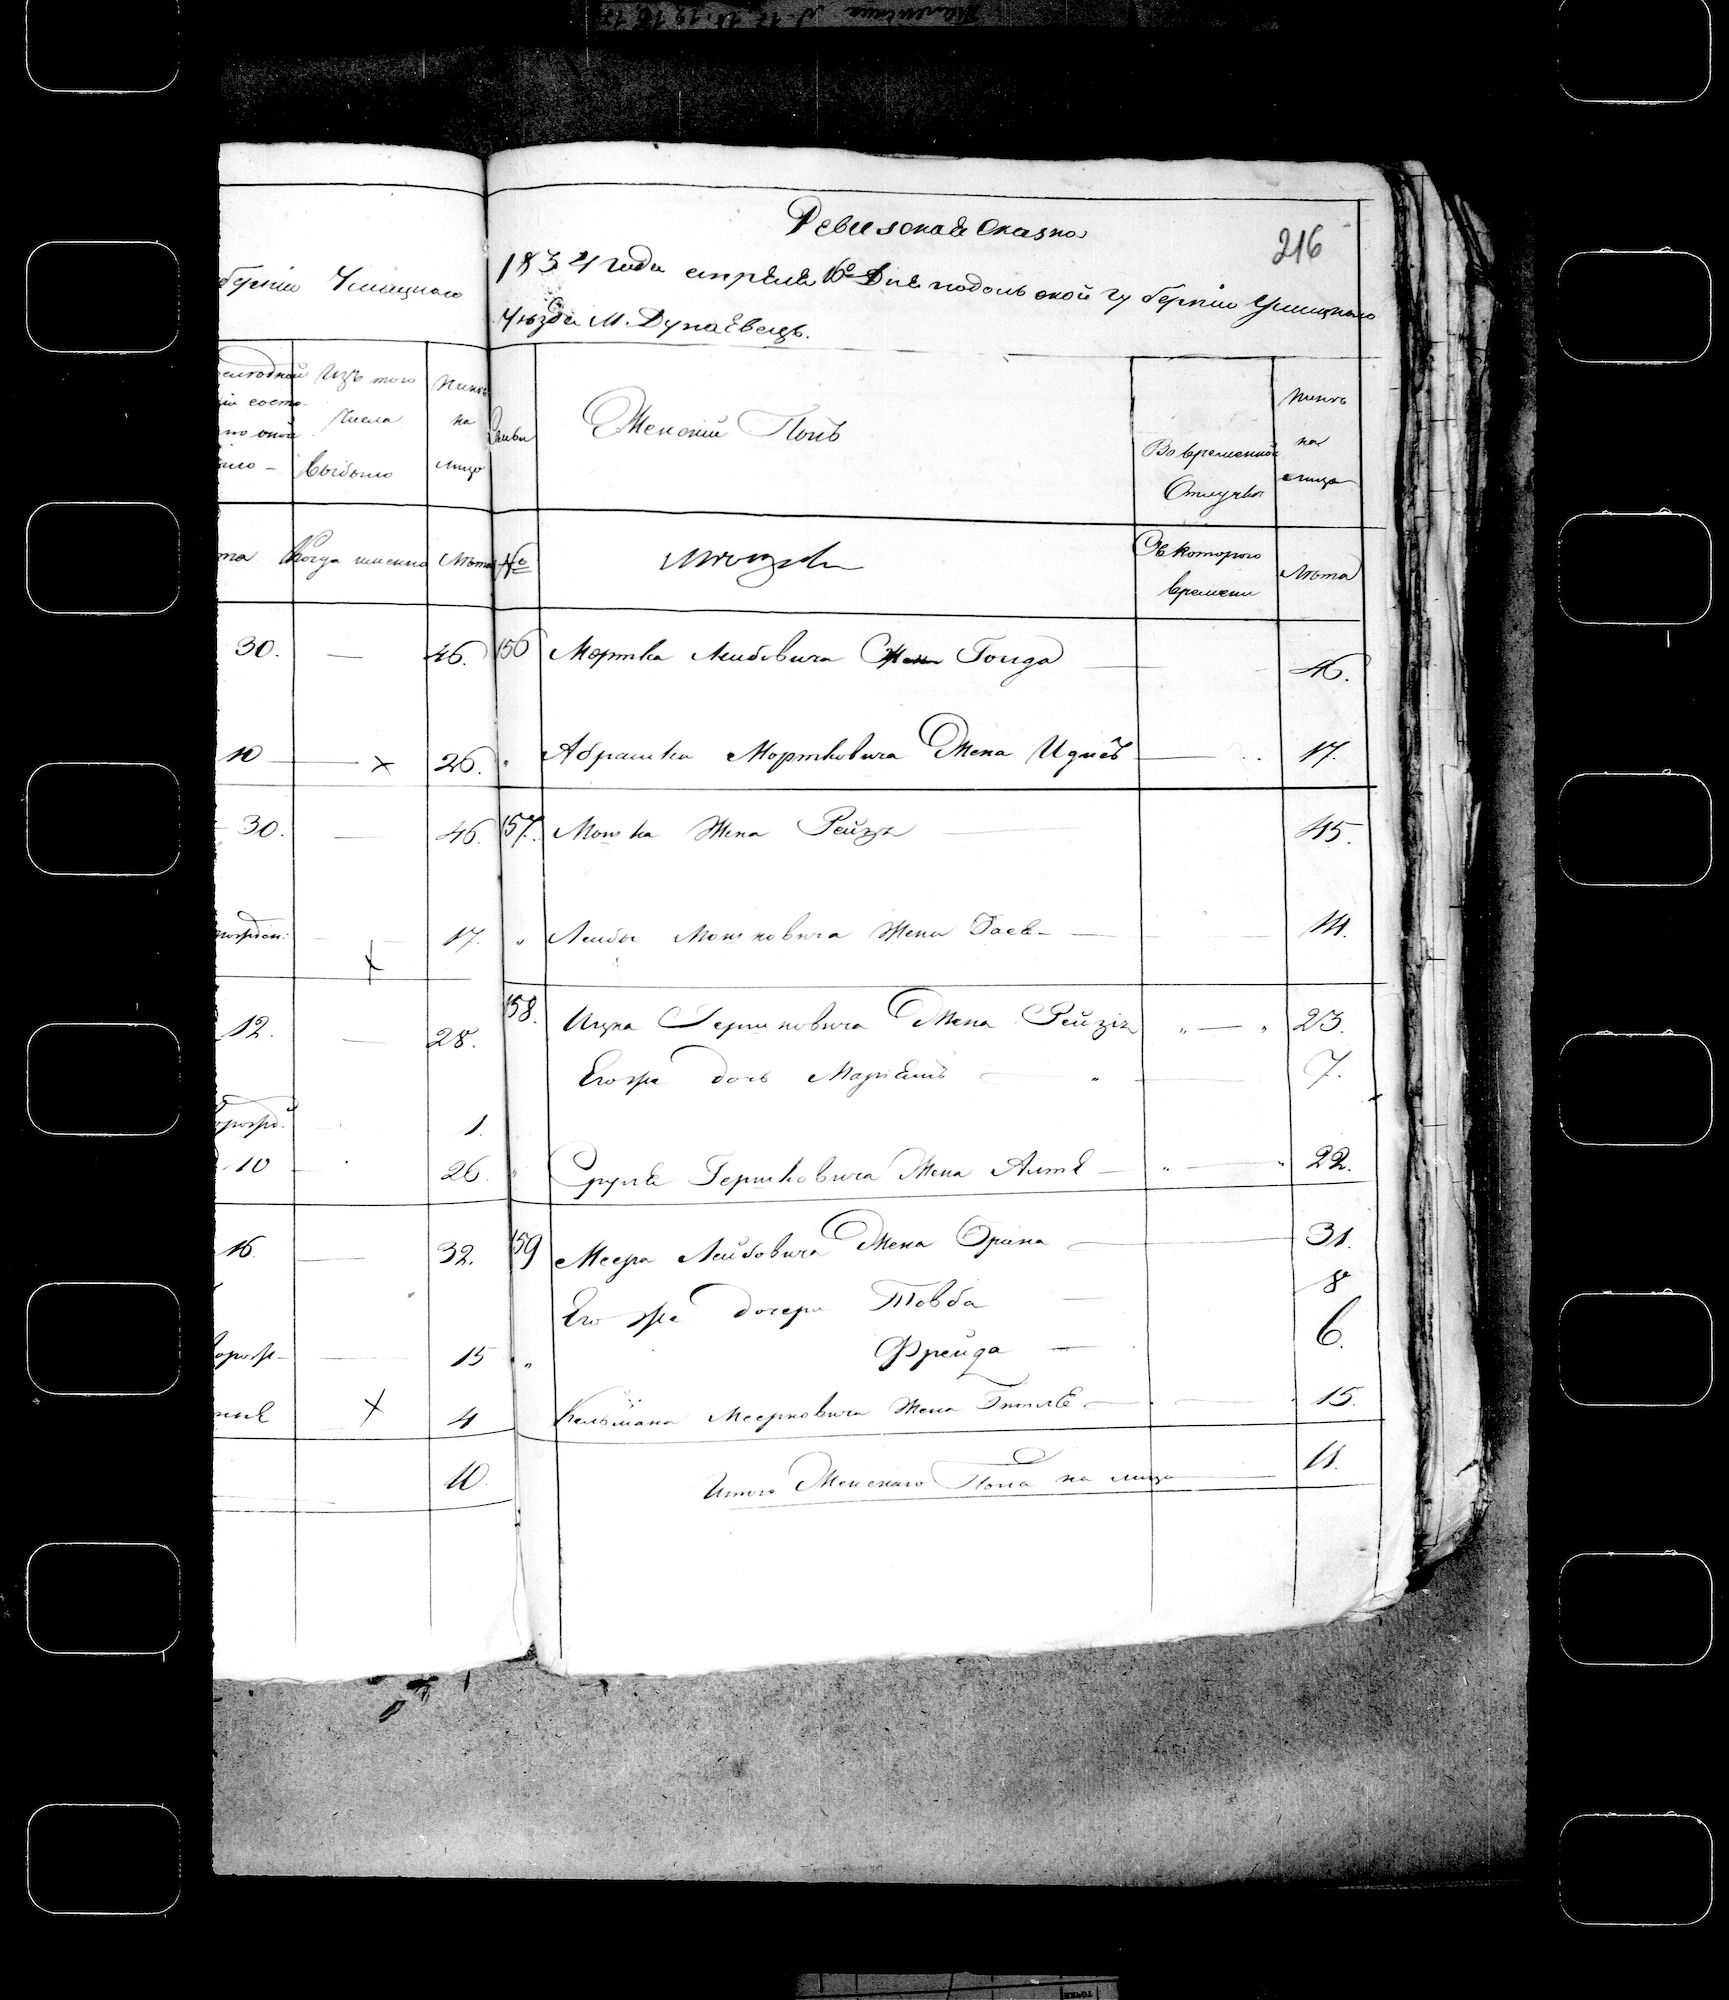 Ревизская сказка
216
1834 года апреля 16º Дня подольской губерніи Ушицкаго
Уѣзда М. Дунаевецъ.
берніи Ушицкаго
Изъ того числа выбыло
Нынѣ на лицо
Семьи
Женскій Полъ
Во временной Отлучкѣ
Нынѣ на лицо
Когда именно
Лѣта
№
Съ котораго времени
Лѣта
30. — 46.
156 Мортка Лейбовича Жена Голда — 46.
10 — × 26.
" Абрамка Мортковича Жена Идисъ — 17.
30. — 46.
157. Мошка Жена Рейзя — 45.
— × 17.
" Лейбы Мошковича Жена — 14.
12. — 28.
158. Ицка Гершковича Жена Рейзя " — " 23.
Егоже дочь Маріемъ — " — 7.
1.
10 — 26.
" Сруля Гершковича Жена Алтя — " — " 22.
16. — 32.
159 Меера Лейбовича Жена — 31.
Его же дочери Товба — 8
Фрейда — 6.
— 15
"
× 4
Кельмана Меерковича Жена Гитля — 15.
10.
Итого Женскаго Пола на лицо — 11.